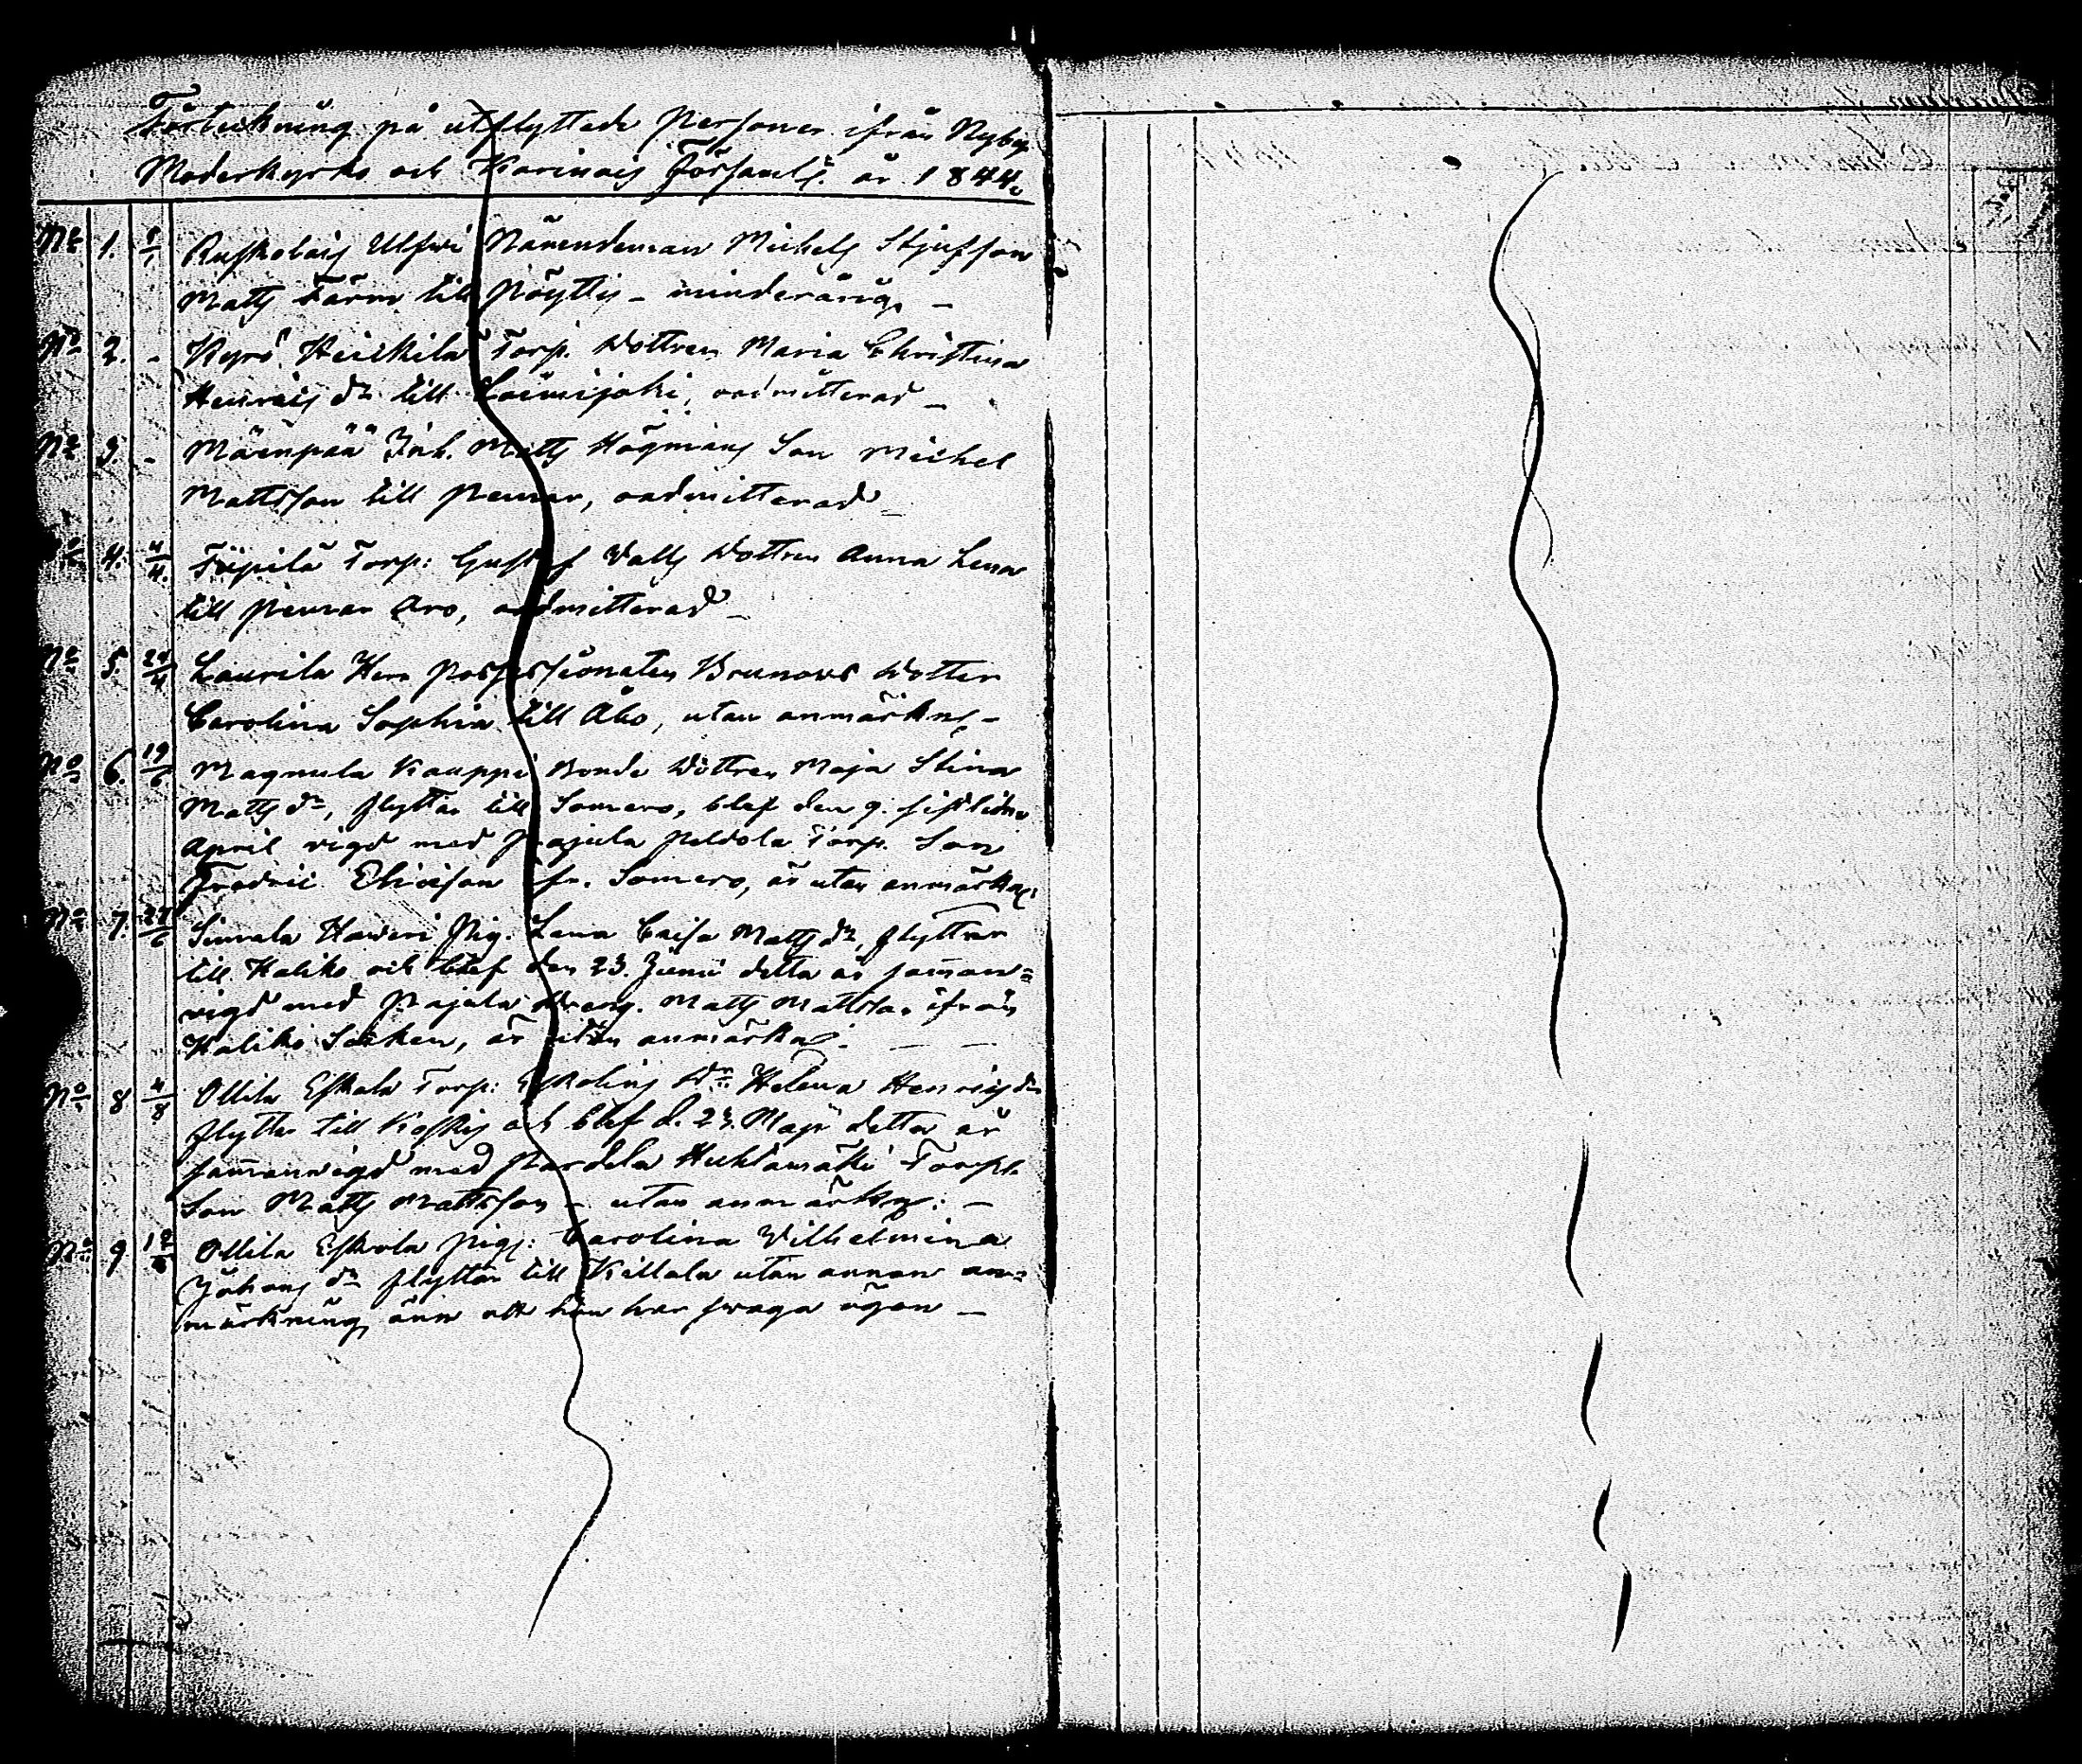 Förteckning på utflyttade Personer ifrån Nyby
Moderkyrko och Karinais Församlg: år 1844.
No 1. Nämndeman Michels Stjufson
Matts Färm till Pöyttis – minderårig –
No 2. – Kyrö Heickilä Torp. Dottren Maria Christina
Henrics dr till Loimijoki, oadmitterad –
No 3. – Mäenpää Inh. Matts Högmans Son Michel
Mattsson till Pemar, oadmitterad –
4. 4/4. Torp: Gustaf Valls Dottren Anna Lena
till Pemar Aro, oadmitterad –
No 5. 24/4 Laurila Herr Possessionaten Brunows Dotter
Carolina Sophia till Åbo, utan anmärkng –
No 6. 19/6 Magnula Kauppi Bonde Dottren Maja Stina
Matts dr, flyttar till Somero, blef den 9. sistlidne
April vigd med Pajula Peldola Torp. Son
Fredric Ericsson fr. Somero, är utan anmärkng:
No 7. 27/6 Pig. Lena Caisa Matts dr, flyttar
till Haliko och blef den 23. Junii detta år samman=
vigd med Pajula Dreng. Matts Mattss. ifrån
Haliko Socken, är utan anmärkng. – –
No 8 4/8 Ollila Eskola Torp: Eskolins Dr Helena Henrics dr
flyttar till Koskis och blef d. 23. Maji detta år
sammanvigd med Pardela Huhtamäki Torps.
Son Matts Mattsson – utan anmärkng: –
No 9 Ollila Eskola Pig: Carolina Wilhelmina
Johans dr flyttar till Kiikala utan annan an=
märkning änn att hon har swaga ögon –